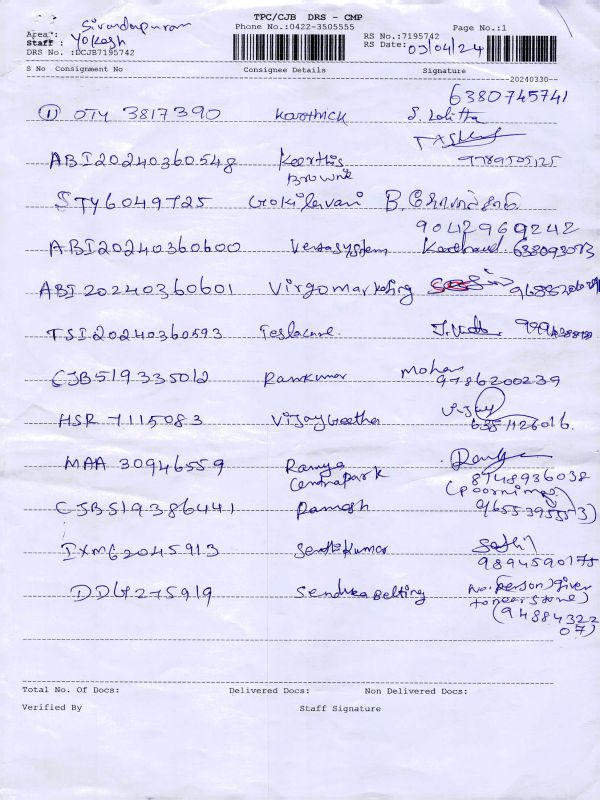 TPC/CJB DRS - CMP
Phone No.:0422-3505555
Page No.:1
Area: Sivandapuram
Staff : Yokesh
DRS No. :DCJB7195742
RS No.:7195742
RS Date: 03/04/24
S No Consignment No Consignee Details Signature
20240330--
6380745741
① OTY 3817390 Karthick S. Lalitha
ABI20240360548 Keerthis 9789505125
Brownie
STY6049725 Gokilavani B.
9042969242
ABI20240360600 Versasystem
ABI20240360601 Virgomarketing
TSI20240360593 Teslacare.
CJB519335012 Ramkumar Mohan
9786200239
HSR 7115083 VijayGeetha Vijay
6351126016.
MAA 30946559 Ramya
Centrapark 8748936038
(Poornima)
CJB519386441 Ramesh 9655395553)
IXM62045913 Senthilkumar
9894590175
DDG275919 Sendhabelting No.person)given
to near store)
(9488432207)
Total No. Of Docs: Delivered Docs: Non Delivered Docs:
Verified By Staff Signature